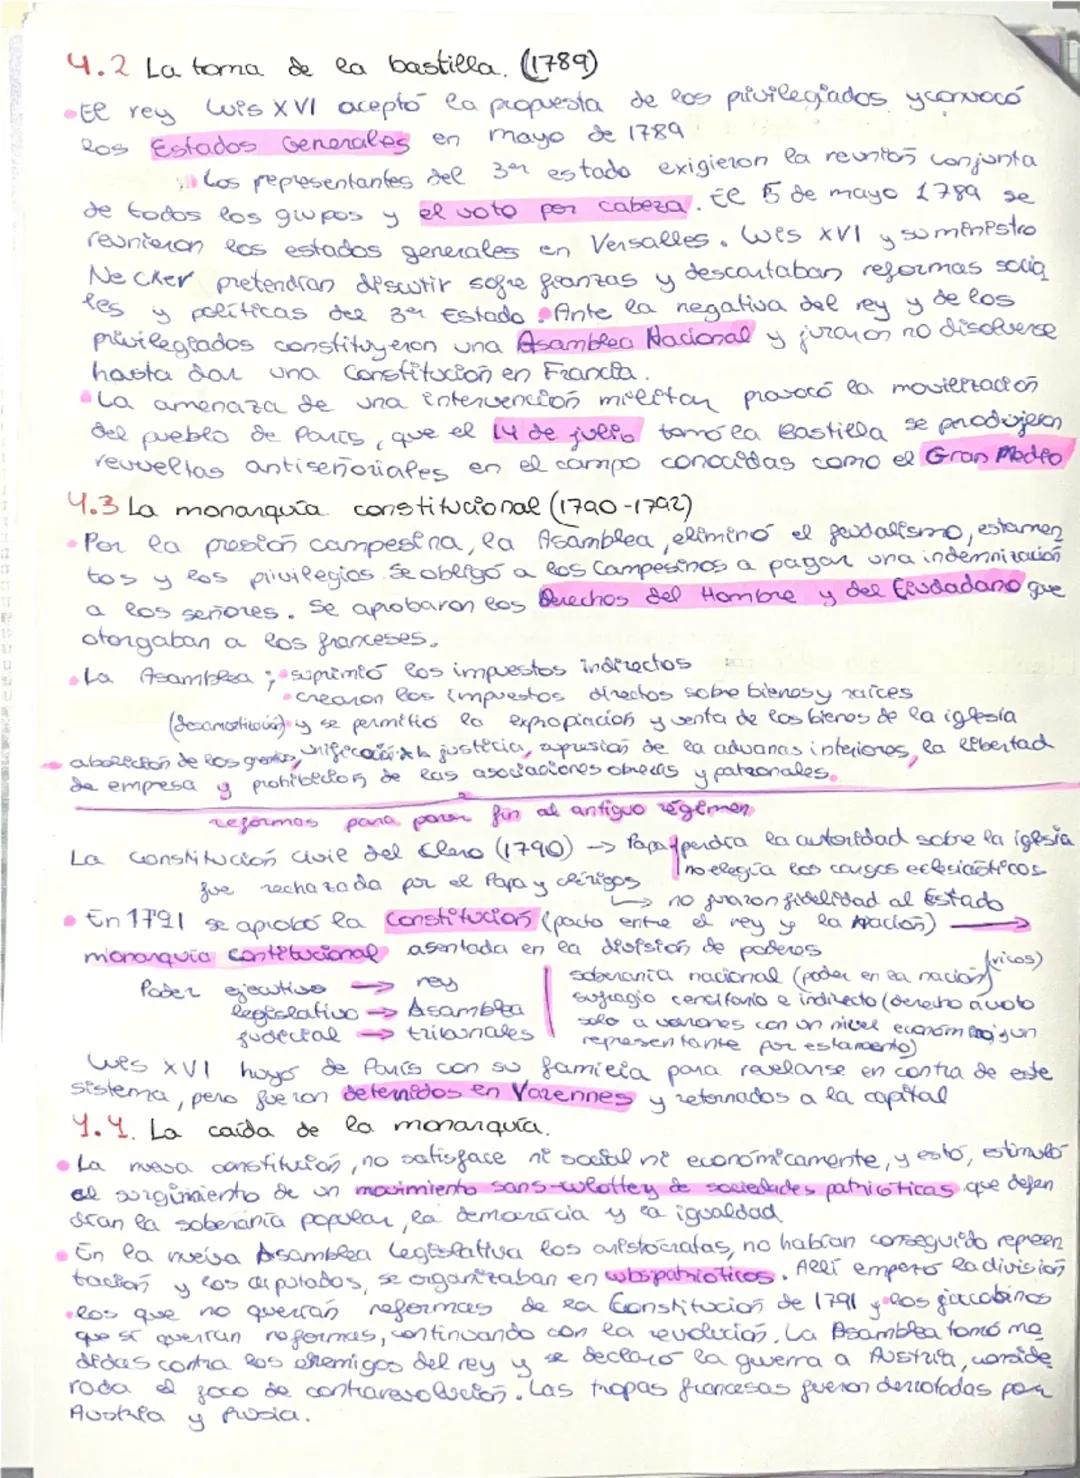 4.2 La toma de la bastilla. (1789)
•El rey Luis XVI aceptó la propuesta de los privilegiados y convocó
los Estados Generales en mayo de 1789
•Los representantes del 3er estado exigieron la reunión conjunta
de todos los grupos y el voto por cabeza. El 5 de mayo 1789 se
reunieron los estados generales en Versalles. Luis XVI y su ministro
Necker pretendían discutir sobre finanzas y descartaban reformas socia
les y políticas del 3er Estado •Ante la negativa del rey y de los
privilegiados constituyeron una Asamblea Nacional y juraron no disolverse
hasta dar una Constitución en Francia.
•La amenaza de una intervención militar provocó la movilización
del pueblo de París, que el 14 de julio tomó la Bastilla se produjeron
revueltas antiseñoriales en el campo conocidas como el Gran Miedo
4.3 La monarquía constitucional (1790-1792)
•Por la presión campesina, la Asamblea, eliminó el feudalismo, estamen
tos y los privilegios. Se obligó a los Campesinos a pagar una indemnización
a los señores. Se aprobaron los Derechos del Hombre y del Ciudadano que
otorgaban a los franceses.
•La Asamblea ; •suprimió los impuestos indirectos
•crearon los impuestos directos sobre bienes y raíces
(desamortización) •y se permitió la expropiación y venta de los bienes de la iglesia
•abolición de los gremios, unificación de la justicia, supresión de la aduanas interiores, la libertad
de empresa y prohibición de las asociaciones obreras y patronales.
reformas para poner fin al antiguo régimen
La Constitución civil del Clero (1790) → Papa perdía la autoridad sobre la iglesia
no elegía los cargos eclesiásticos
fue rechazada por el Papa y clérigos
→ no juraron fidelidad al Estado
•En 1791 se aprobó la Constitución (pacto entre el rey y la Nación) →
monarquía contitucional asentada en la división de poderes
Poder ejecutivo → rey
legislativo → Asamblea
judicial → tribunales
soberanía nacional (poder en la nación) (ricos)
sufragio censitario e indirecto (derecho a voto
solo a varones con un nivel económico y un
representante por estamento)
Luis XVI huyó de París con su familia para revelarse en contra de este
sistema, pero fueron detenidos en Varennes y retornados a la capital
4.4. La caída de la monarquía.
•La nueva constitución, no satisface ni social ni económicamente, y esto, estimuló
el surgimiento de un movimiento sans-culottey de sociedades patrióticas que defen
dían la soberanía popular, la democracia y la igualdad
•En la nueva Asamblea Legislativa los aristócratas, no habían conseguido represen
tación y los diputados, se organizaban en clubs patrióticos. Allí empezó la división
•los que no querían reformas de la Constitución de 1791 y •los jacobinos
que sí querían reformas, continuando con la revolución. La Asamblea tomó me
didas contra los enemigos del rey y se declaró la guerra a Austria, conside
rada el foco de contrarevolución. Las tropas francesas fueron derrotadas por
Austria y Prusia.